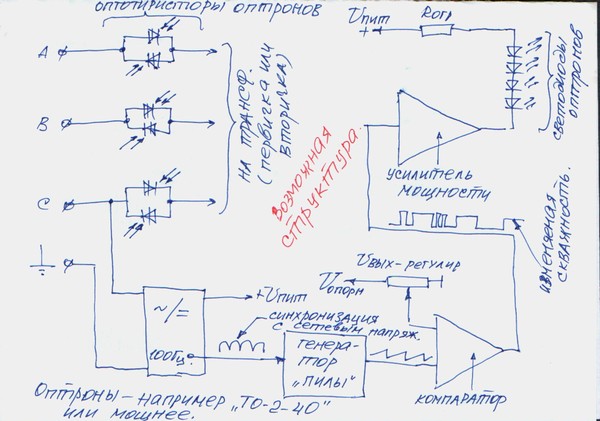 оптотиристоры оптронов
A
B
C
НА ТРАНСФ.
(первичка или
вторичка)
возможная
структура.
Uпит
+
Rогр
светодиоды
оптронов
усилитель
мощности
изменяемая
скважность.
Uвых-регулир
Uопорн
+Uпит
синхронизация
с сетевым напряж.
~/=
100Гц
генера-
тор
„пилы“
компаратор
Оптроны – например „ТО-2-40“
или мощнее.